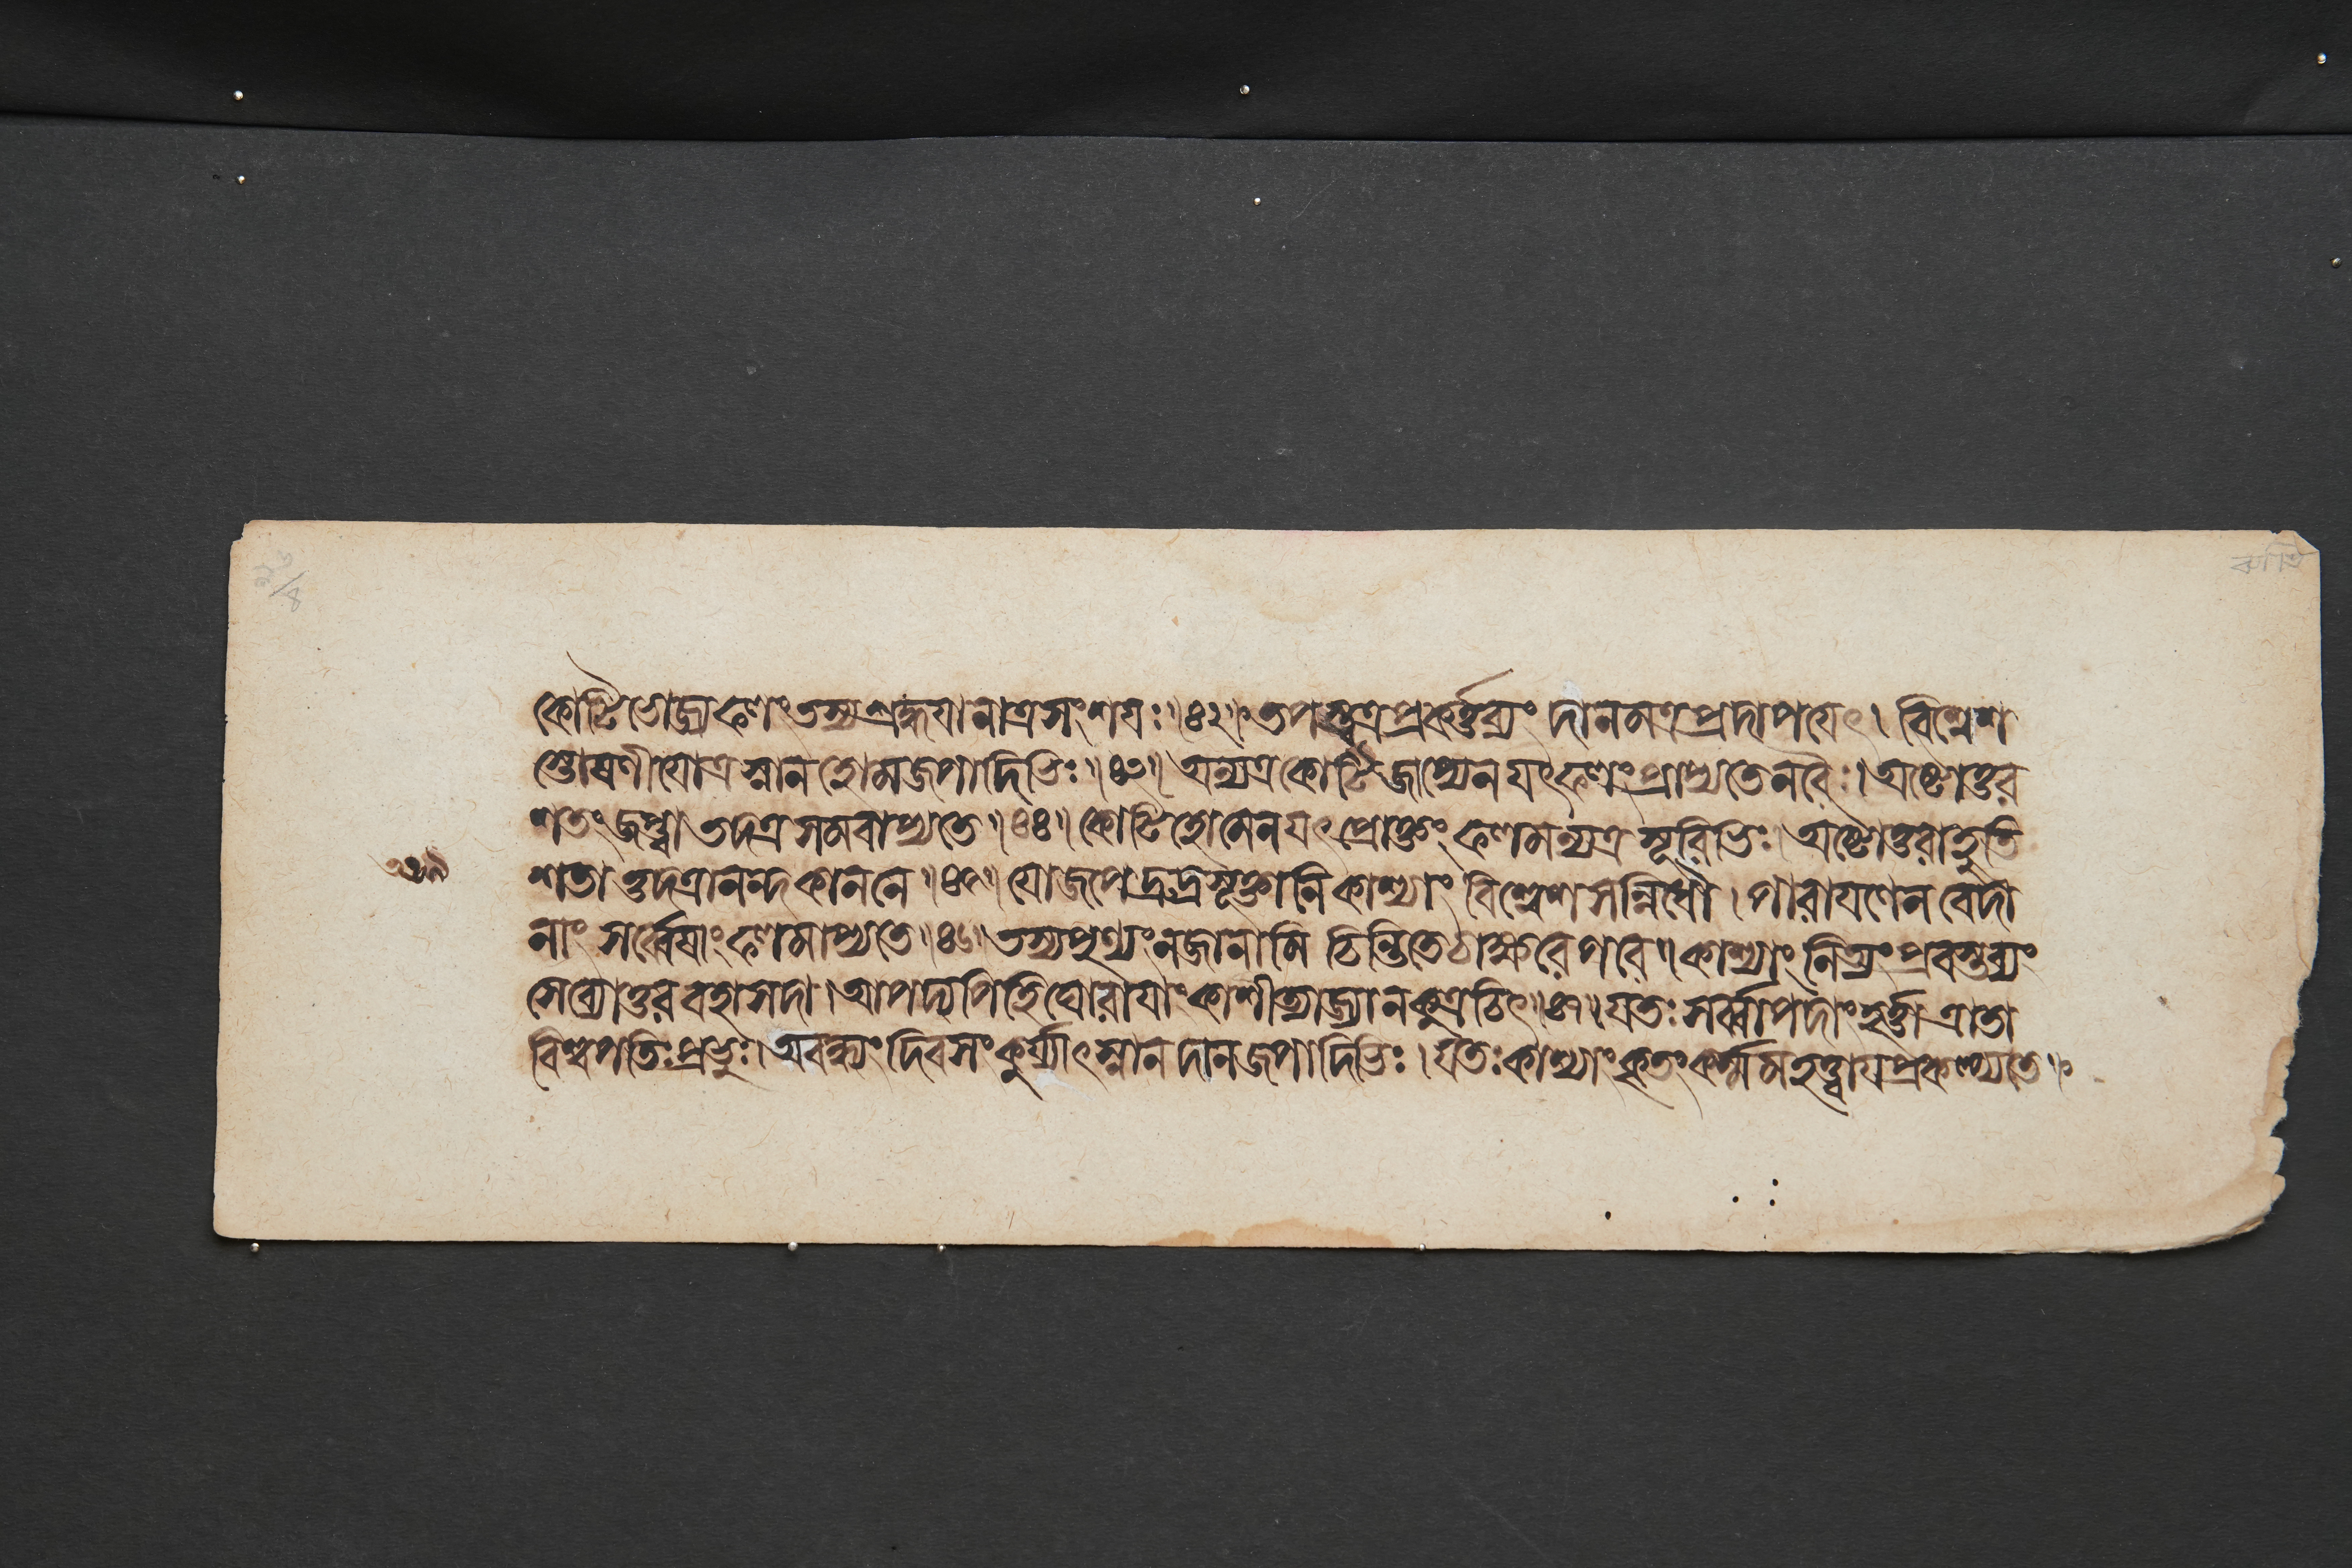 কোটিভোজ্যফলং তস্য শ্রদ্ধয়া নাত্র সংশয়ঃ॥৪২॥ তপস্ত্বত্র প্রকর্ত্তব্যং দানমত্র প্রদাপয়েৎ। বিশ্বেশ
স্তোষণীয়োত্র স্নানহোমজপাদিভিঃ॥৪৩॥ অন্যত্র কোটিজপ্যেন যৎফলং প্রাপ্যতে নরৈঃ। অষ্টোত্তর
শতং জপ্ত্বা তদত্র সমবাপ্যতে॥৪৪॥ কোটিহোমেন যৎ প্রোক্তং ফলমন্যত্র সূরিভিঃ। অষ্টোত্তরাহুতি
১৩৯
শতাত্তদত্রানন্দকাননে॥৪৫॥ যো জপেদ্রুদ্রসূক্তানি কাশ্যাং বিশ্বেশসন্নিধৌ। পারায়ণেন বেদা
নাং সর্ব্বেষাং ফলমাপ্যতে॥৪৬॥ তস্য পুণ্যং ন জানামি চিন্তিতে চাক্ষরে পরে॥ কাশ্যাং নিত্যং প্রবস্তব্যং
সেব্যোত্তরবহা সদা। আপদ্যপি হি ঘোরায়াং কাশী ত্যাজ্যা ন কুত্রচিৎ॥৪৭॥ যতঃ সর্ব্বাপদাং হর্ত্তা ত্রাতা
বিশ্বপতিঃ প্রভুঃ। অবন্ধ্যং দিবসং কুর্য্যাৎ স্নানদানজপাদিভিঃ। যতঃ কাশ্যাং কৃতং কর্ম্ম মহত্ত্বায় প্রকল্প্যতে॥